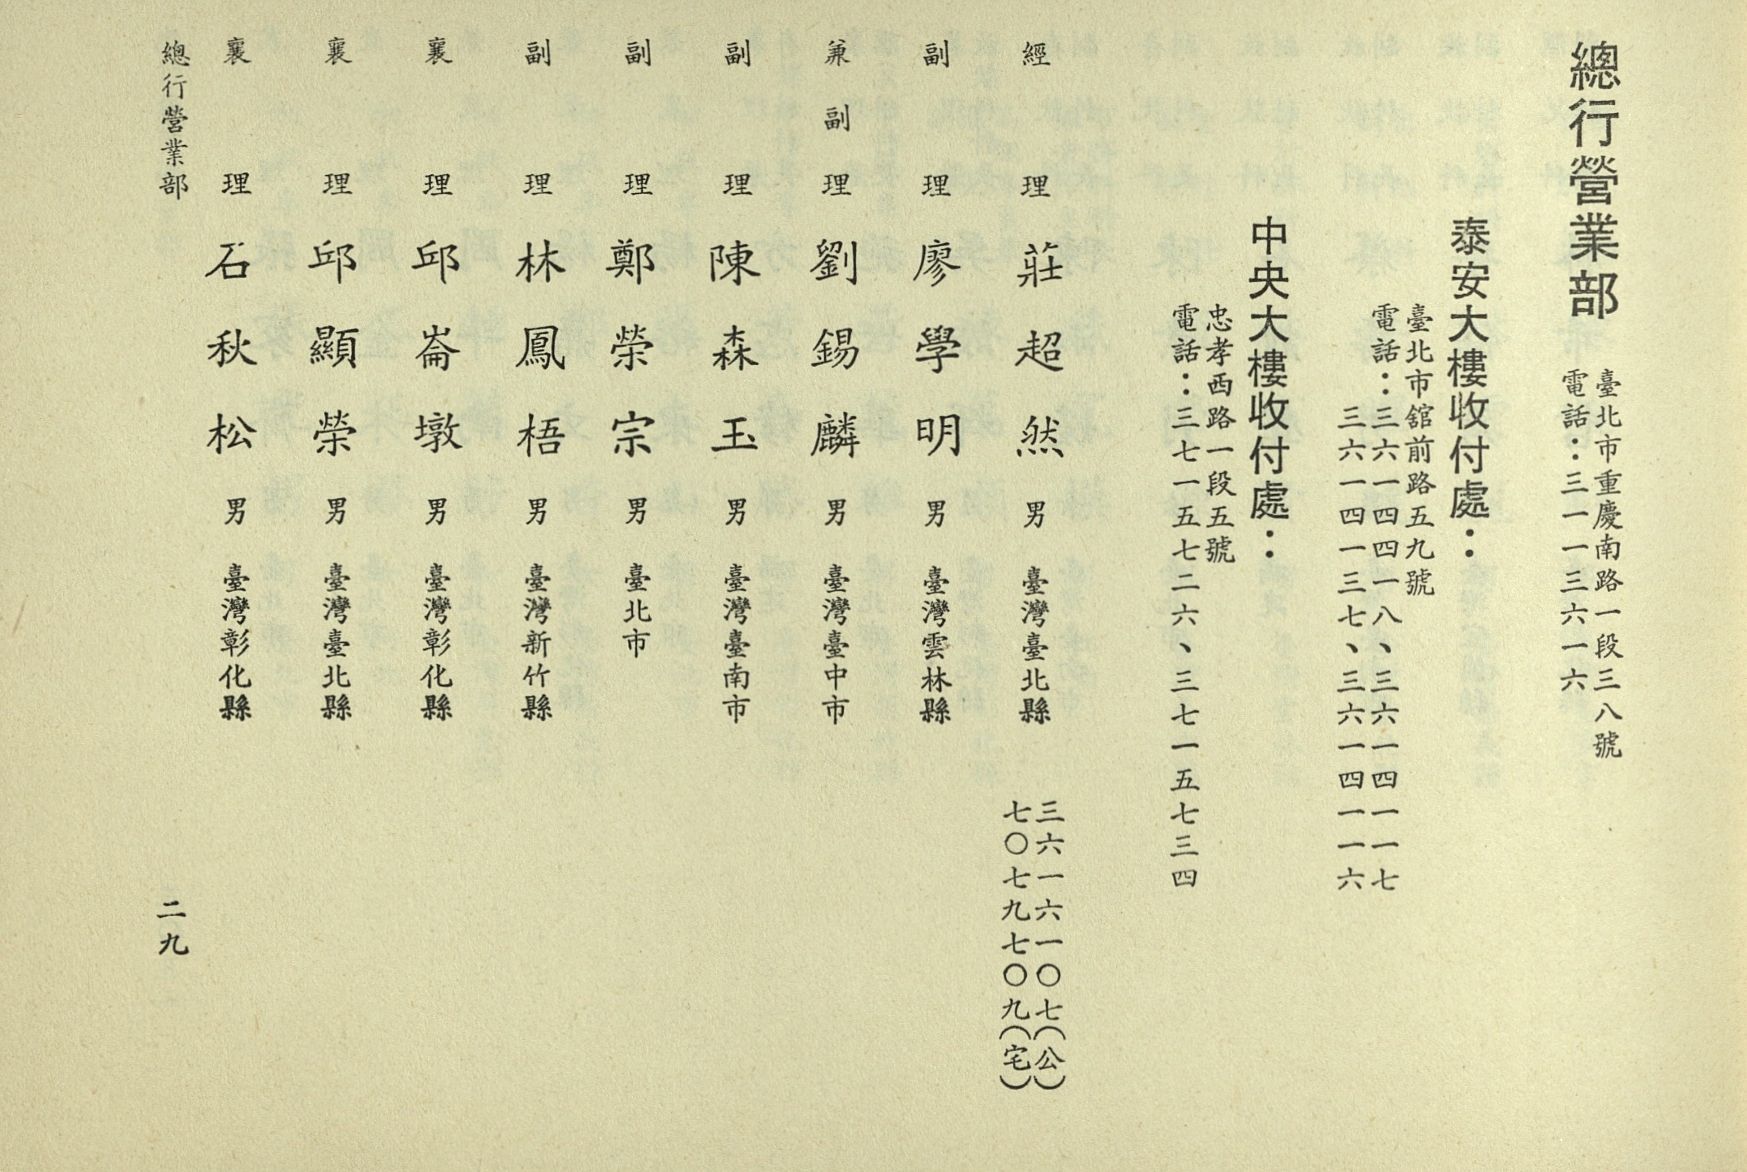 總行營業部
臺北市重慶南路一段三八號
電話：三一一三六一六
泰安大樓收付處：
臺北市舘前路五九號
電話：三六一四四一八、三六一四一一七
三六一四一三七、三六一四一一六
中央大樓收付處：
忠孝西路一段五號
電話：三七一五七二六、三七一五七三四
經理 莊超然 男 臺灣臺北縣 三六一六一〇七(公)
七〇七九七〇九(宅)
副理 廖學明 男 臺灣雲林縣
兼副理 劉錫麟 男 臺灣臺中市
副理 陳森玉 男 臺灣臺南市
副理 鄭榮宗 男 臺北市
副理 林鳳梧 男 臺灣新竹縣
襄理 邱崙墩 男 臺灣彰化縣
襄理 邱顯榮 男 臺灣臺北縣
襄理 石秋松 男 臺灣彰化縣
總行營業部 二九